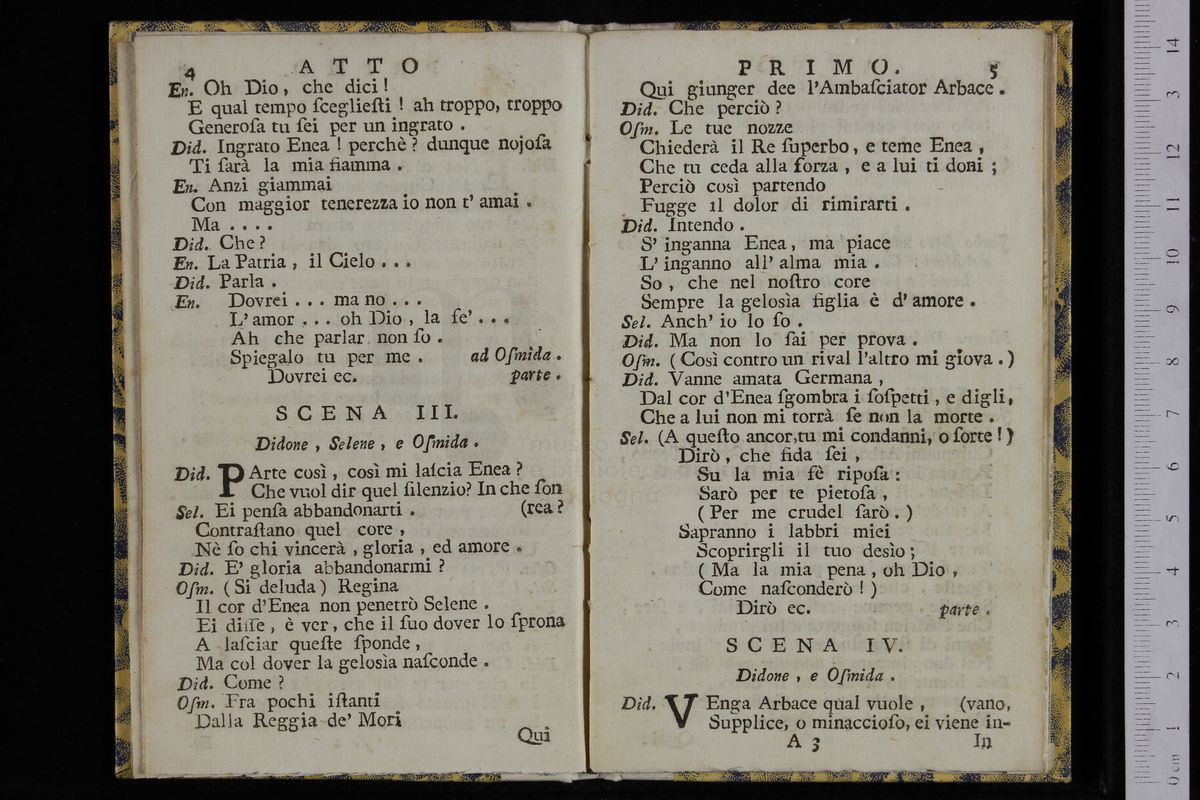 4 ATTO
En. Oh Dio, che dici!
E qual tempo ſceglieſti! ah troppo, troppo
Generoſa tu ſei per un ingrato.
Did. Ingrato Enea! perchè? dunque nojoſa
Ti ſarà la mia fiamma.
En. Anzi giammai
Con maggior tenerezza io non t' amai.
Ma . . . .
Did. Che?
En. La Patria, il Cielo . . .
Did. Parla.
En. Dovrei . . . ma no . . .
L' amor . . . oh Dio, la fe' . . .
Ah che parlar non ſo.
Spiegalo tu per me. ad Oſmida.
Dovrei ec. parte.
SCENA III.
Didone, Selene, e Oſmida.
Did. PArte così, così mi laſcia Enea?
Che vuol dir quel ſilenzio? In che ſon
Sel. Ei penſa abbandonarti. (rea?
Contraſtano quel core,
Nè ſo chi vincerà, gloria, ed amore.
Did. E' gloria abbandonarmi?
Oſm. (Si deluda) Regina
Il cor d'Enea non penetrò Selene.
Ei diſſe, è ver, che il ſuo dover lo ſprona
A laſciar queſte ſponde,
Ma col dover la gelosìa naſconde.
Did. Come?
Oſm. Fra pochi iſtanti
Dalla Reggia de' Mori
Qui
PRIMO. 5
Qui giunger dee l'Ambaſciator Arbace.
Did. Che perciò?
Oſm. Le tue nozze
Chiederà il Re ſuperbo, e teme Enea,
Che tu ceda alla forza, e a lui ti doni;
Perciò così partendo
Fugge il dolor di rimirarti.
Did. Intendo.
S' inganna Enea, ma piace
L' inganno all' alma mia.
So, che nel noſtro core
Sempre la gelosìa figlia è d' amore.
Sel. Anch' io lo ſo.
Did. Ma non lo ſai per prova.
Oſm. (Così contro un rival l'altro mi giova.)
Did. Vanne amata Germana,
Dal cor d'Enea ſgombra i ſoſpetti, e digli,
Che a lui non mi torrà ſe non la morte.
Sel. (A queſto ancor,tu mi condanni, o ſorte!)
Dirò, che fida ſei,
Su la mia fè ripoſa:
Sarò per te pietoſa,
(Per me crudel ſarò.)
Sapranno i labbri miei
Scoprirgli il tuo desìo;
(Ma la mia pena, oh Dio,
Come naſconderò!)
Dirò ec. parte.
SCENA IV.
Didone, e Oſmida.
Did. VEnga Arbace qual vuole, (vano,
Supplice, o minaccioſo, ei viene in-
A 3 In